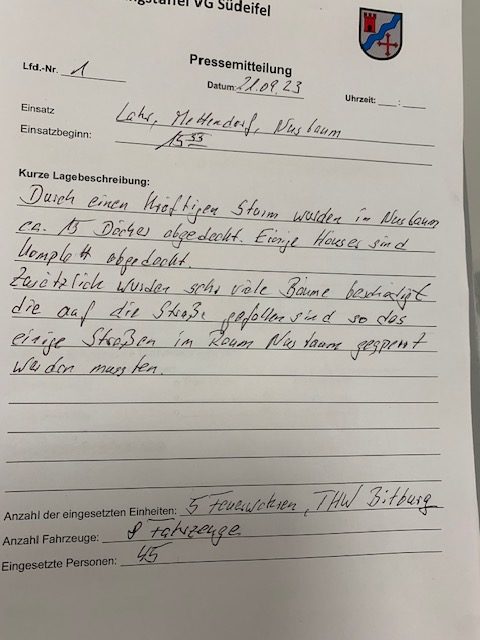 ngsstaffel VG Südeifel
Pressemitteilung
Lfd.-Nr. 1
Datum: 21.09.23
Uhrzeit: __:__
Einsatz Lahr, Mettendorf, Nusbaum
Einsatzbeginn: 15 33
Kurze Lagebeschreibung:
Durch einen kräftigen Sturm wurden in Nusbaum
ca. 15 Dächer abgedeckt. Einige Häuser sind
komplett abgedeckt.
Zusätzlich wurden sehr viele Bäume beschädigt
die auf die Straße gefallen sind so das
einige Straßen im Raum Nusbaum gesperrt
werden mussten.
Anzahl der eingesetzten Einheiten: 5 Feuerwehren, THW Bitburg
Anzahl Fahrzeuge: 8 Fahrzeuge
Eingesetzte Personen: 45